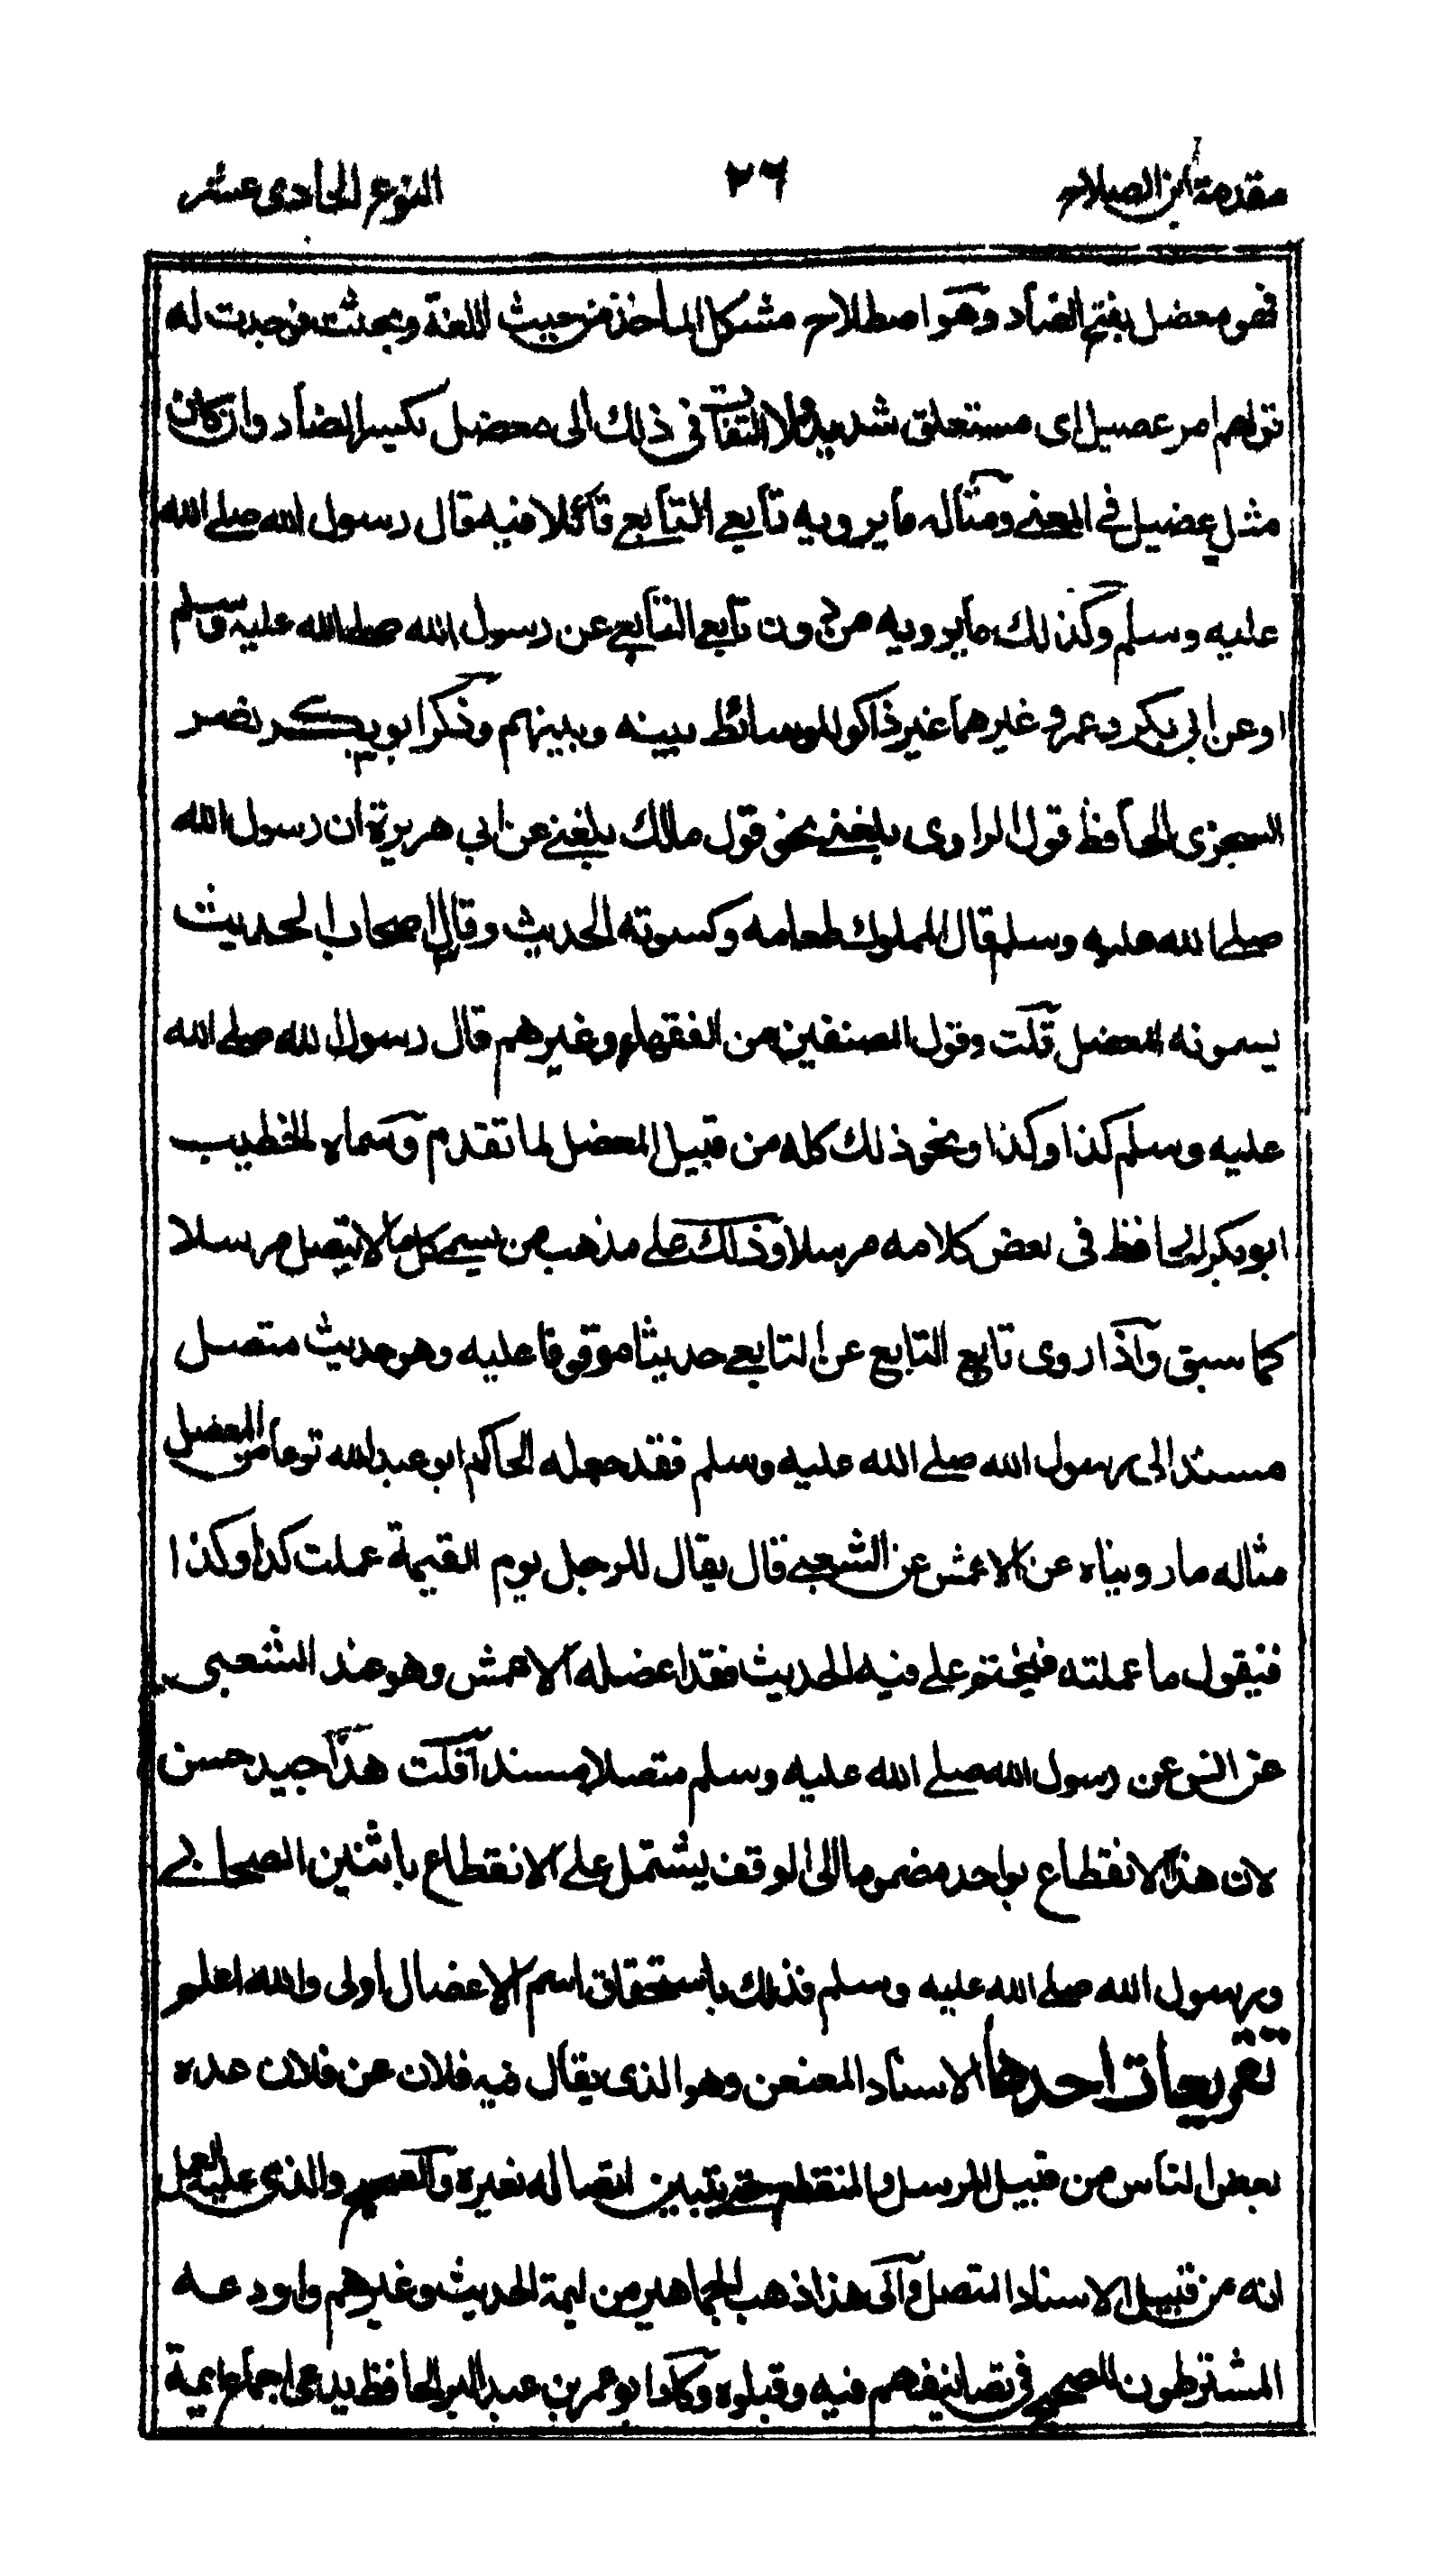 مقدمة ابن الصلاح ٢٦ النوع الحادى عشر
فهو معضل بفتح الضاد وهو اصطلاح مشكل المأخذ من حيث اللغة وبحثت فوجدت له
قولهم امر عضيل اى مستغلق شديد ولا التفات فى ذلك الى معضل بكسر الضاد وان كان
مثل عضيل فى المعنى ومثاله ما يرويه تابعى التابعى قائلا فيه قال رسول الله صلى الله
عليه وسلم وكذلك ما يرويه من دون تابعى التابعى عن رسول الله صلى الله عليه وسلم
او عن ابى بكر وعمر و غيرهما غير ذاكر للوسائط بينه وبينهم وذكر ابو نصر
السجزى الحافظ قول الراوى بلغنى نحو قول مالك بلغنى عن ابى هريرة ان رسول الله
صلى الله عليه وسلم قال للمملوك طعامه وكسوته الحديث وقال اصحاب الحديث
يسمونه المعضل قلت وقول المصنفين من الفقهاء وغيرهم قال رسول الله صلى الله
عليه وسلم كذا وكذا ونحو ذلك كله من قبيل المعضل لما تقدم وسماه الخطيب
ابو بكر الحافظ فى بعض كلامه مرسلا وذلك على مذهب من يسمى كل ما لا يتصل مرسلا
كما سبق واذا روى تابع التابع عن التابعى حديثا موقوفا عليه وهو حديث متصل
مسند الى رسول الله صلى الله عليه وسلم فقد جعله الحاكم ابو عبد الله نوعا من المعضل
مثاله ما رويناه عن الاعمش عن الشعبى قال يقال للرجل يوم القيمة عملت كذا وكذا
فيقول ما عملته فيختم على فيه الحديث فقد اعضله الاعمش وهو عند الشعبى
عن انس عن رسول الله صلى الله عليه وسلم متصلا مسندا قلت هذا جيد حسن
لان هذا الانقطاع بواحد مضموما الى الوقف يشتمل على الانقطاع باثنين الصحابى
ورسول الله صلى الله عليه وسلم فذلك باستحقاق اسم الاعضال اولى والله اعلم
تفريعات احدها الاسناد المعنعن وهو الذى يقال فيه فلان عن فلان عده
بعض الناس من قبيل المرسل والمنقطع حتى يتبين اتصاله بغيره والصحيح والذى عليه العمل
انه من قبيل الاسناد المتصل والى هذا ذهب الجماهير من ايمة الحديث وغيرهم واودعه
المشترطون للصحيح فى تصانيفهم فيه وقبلوه وكاد ابو عمر بن عبد البر الحافظ يدعى اجماع ايمة